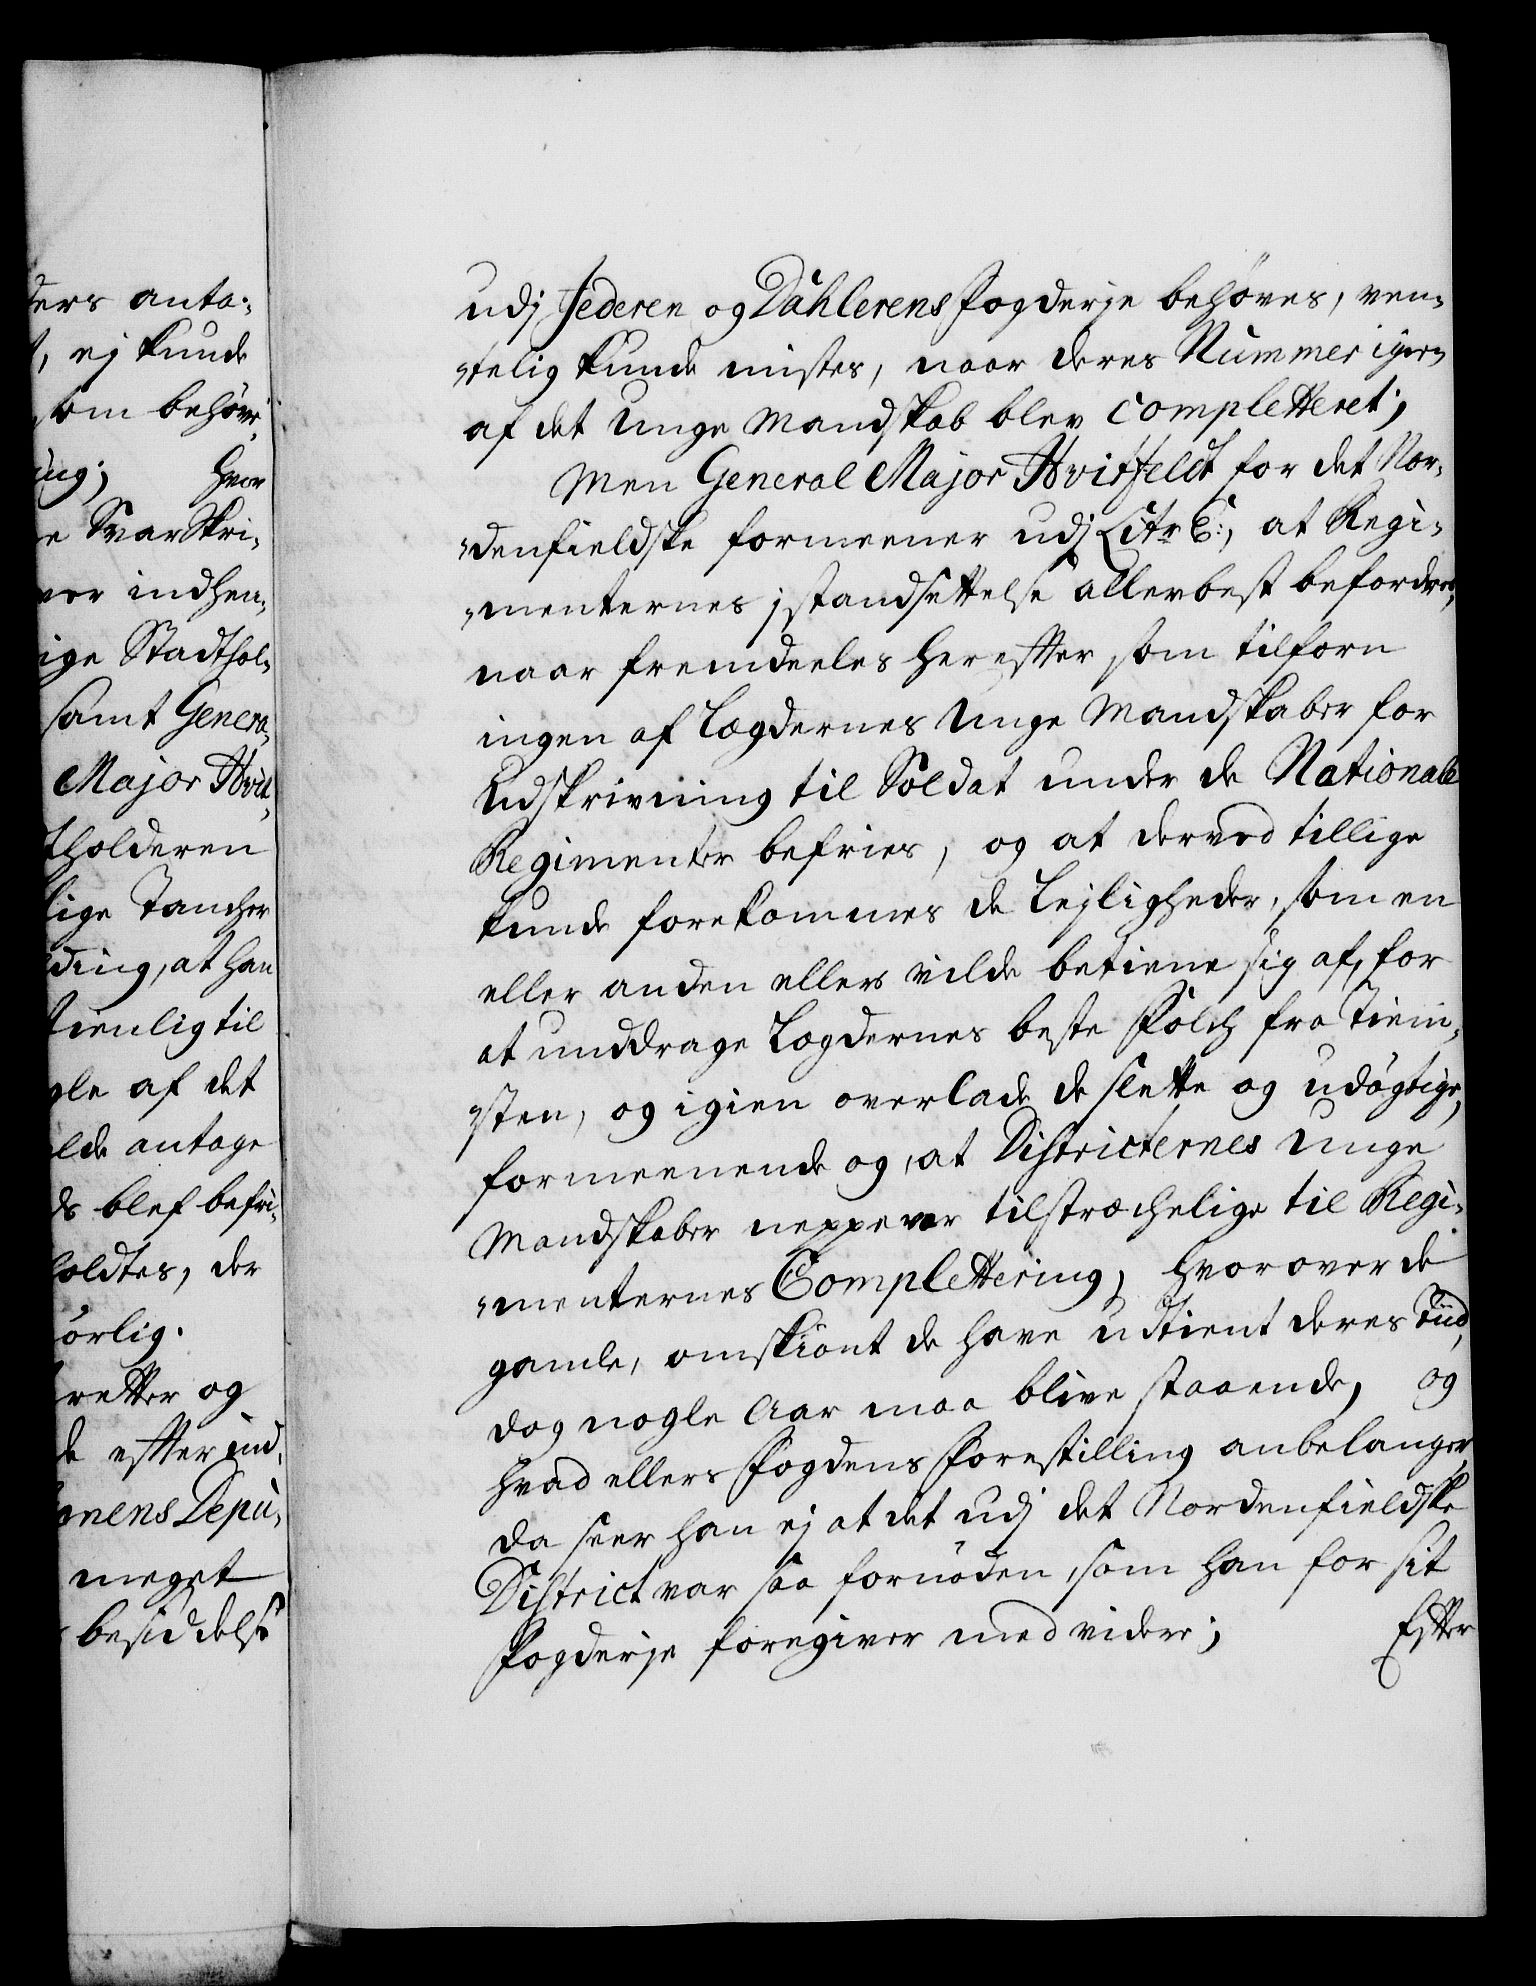 ders anta-
, ej kunde
som behöve
ing; hvor
e SvarSkri-
ver indhen-
ige Stadthol-
samt Genera-
Major Hvit-
tholderen
lige Tancher
ding, at han
tienlig til
gle af det
lde antage
ds blef befri-
holdtes, der
örlig.
retter og
de effter ind-
mens Depu-
meget
besiddelse
udj Jederen og Dahlerens Fogderje behøves, ven-
telig kunde mistes, naar deres Nummer igien
af det Unge Mandskab blev completteret;
Men General Major Hvitfeldt for det Nor-
denfieldske formeener udj Litr C:, at Regi-
menternes jstandsettelse allerbest befordres,
naar fremdeeles her effter som tilforn
ingen af Lægdernes Unge Mandskaber for
Udskrivning til Soldat under de Nationale
Regimenter befries, og at derved tillige
kunde forekommes de Lejligheder, som en
eller anden ellers vilde betiene sig af, for
at unddrage Lægdernes beste Folch fra Tieni-
sten, og igien overlade de slette og udøgtige,
formeenende og, at Districternes Unge
Mandskaber neppe var tilstræchelige til Regi-
menternes Complettering, hvorover de
gamle, omskiönt de have udtient deres Tiid,
dog nogle Aar maa blive staaende, og
hvad ellers Fogdens Forestilling anbelanger,
da seer han ej at det udj det Nordenfieldske
District var saa fornöden, som han for sit
Fogderje foregiver med videre; Effter